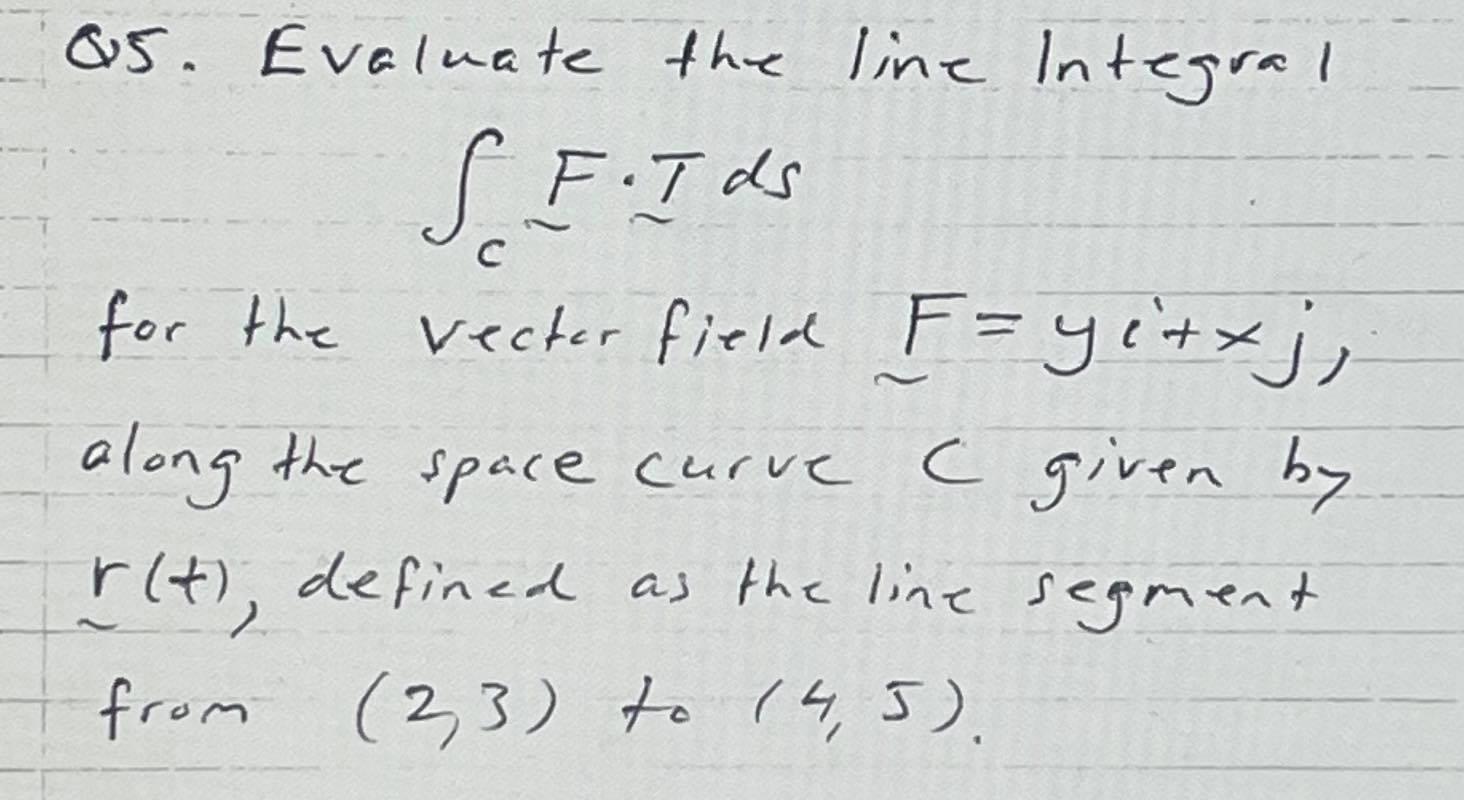 Q5. Evaluate the line Integral
∫_C F̰ · T̰ ds
for the vector field F̰ = y i + x j,
along the space curve C given by
r̰(t), defined as the line segment
from (2,3) to (4,5).